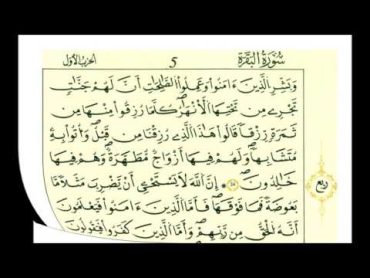 سُورَةُ البَقَرَةِ 5 الحزب الأول
وَبَشِّرِ الذِينَ ءَامَنُواْ وَعَمِلُواْ الصَّٰلِحَٰتِ أَنَّ لَهُمْ جَنَّٰتٖ
تَجْرِے مِن تَحْتِهَا اَلَانْهَٰرُ كُلَّمَا رُزِقُواْ مِنْهَا مِن
ثَمَرَةٖ رِّزْقاٗ قَالُواْ هَٰذَا اَلذِے رُزِقْنَا مِن قَبْلُ وَأُتُواْ بِهِۦ
مُتَشَٰبِهاٗ وَلَهُمْ فِيهَا أَزْوَٰجٞ مُّطَهَّرَةٞ وَهُمْ فِيهَا
خَٰلِدُونَ ۞ إِنَّ اَللَّهَ لَا يَسْتَحْيِۦ أَنْ يَّضْرِبَ مَثَلاٗ مَّا
بَعُوضَةٗ فَمَا فَوْقَهَا فَأَمَّا اَلذِينَ ءَامَنُواْ فَيَعْلَمُونَ
أَنَّهُ اُلْحَقُّ مِن رَّبِّهِمْ وَأَمَّا اَلذِينَ كَفَرُواْ فَيَقُولُونَ
ربع